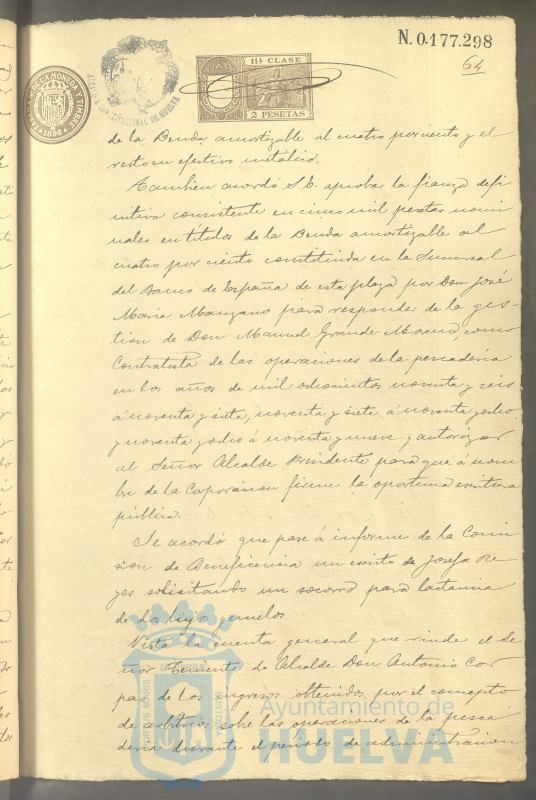 N. 0.177.298
64
FABRICA NACIONAL DE LA MONEDA Y TIMBRE
1896
ALCALDIA CONSTITUCIONAL DE HUELVA
11ª CLASE
2 PESETAS
de la Deuda amortizable al cuatro por ciento y el
resto en efectivo metálico.
Tambien acordó S.E. aprobar la fianza defi
nitiva consistente en cinco mil pesetas nomi
nales en títulos de la Deuda amortizable al
cuatro por ciento constituida en la Sucursal
del Banco de España de esta plaza por Don José
Maria Manzano para responder de la ges-
tion de Don Manuel Grande como
Contratista de las operaciones de la pescadería
en los años de mil ochocientos noventa y seis
á noventa y siete, noventa y siete á noventa y ocho
y noventa y ocho á noventa y nueve y autorizar
al Señor Alcalde Presidente para que á nom
bre de la Corporacion firme la oportuna escritura
pública.
Se acordó que pase á informe de la Comi
sion de Beneficencia un escrito de Josefa Re
yes solicitando un socorro para lactancia
de dos hijos gemelos
Vista la cuenta general que rinde el Se
ñor Teniente de Alcalde Don Antonio Cor
pa de los ingresos obtenidos por el concepto
de arbitrios sobre las operaciones de la pesca
deria durante el período de administracion
PORTUS MARIS ET TERRAE CUSTODIA
Ayuntamiento de
HUELVA